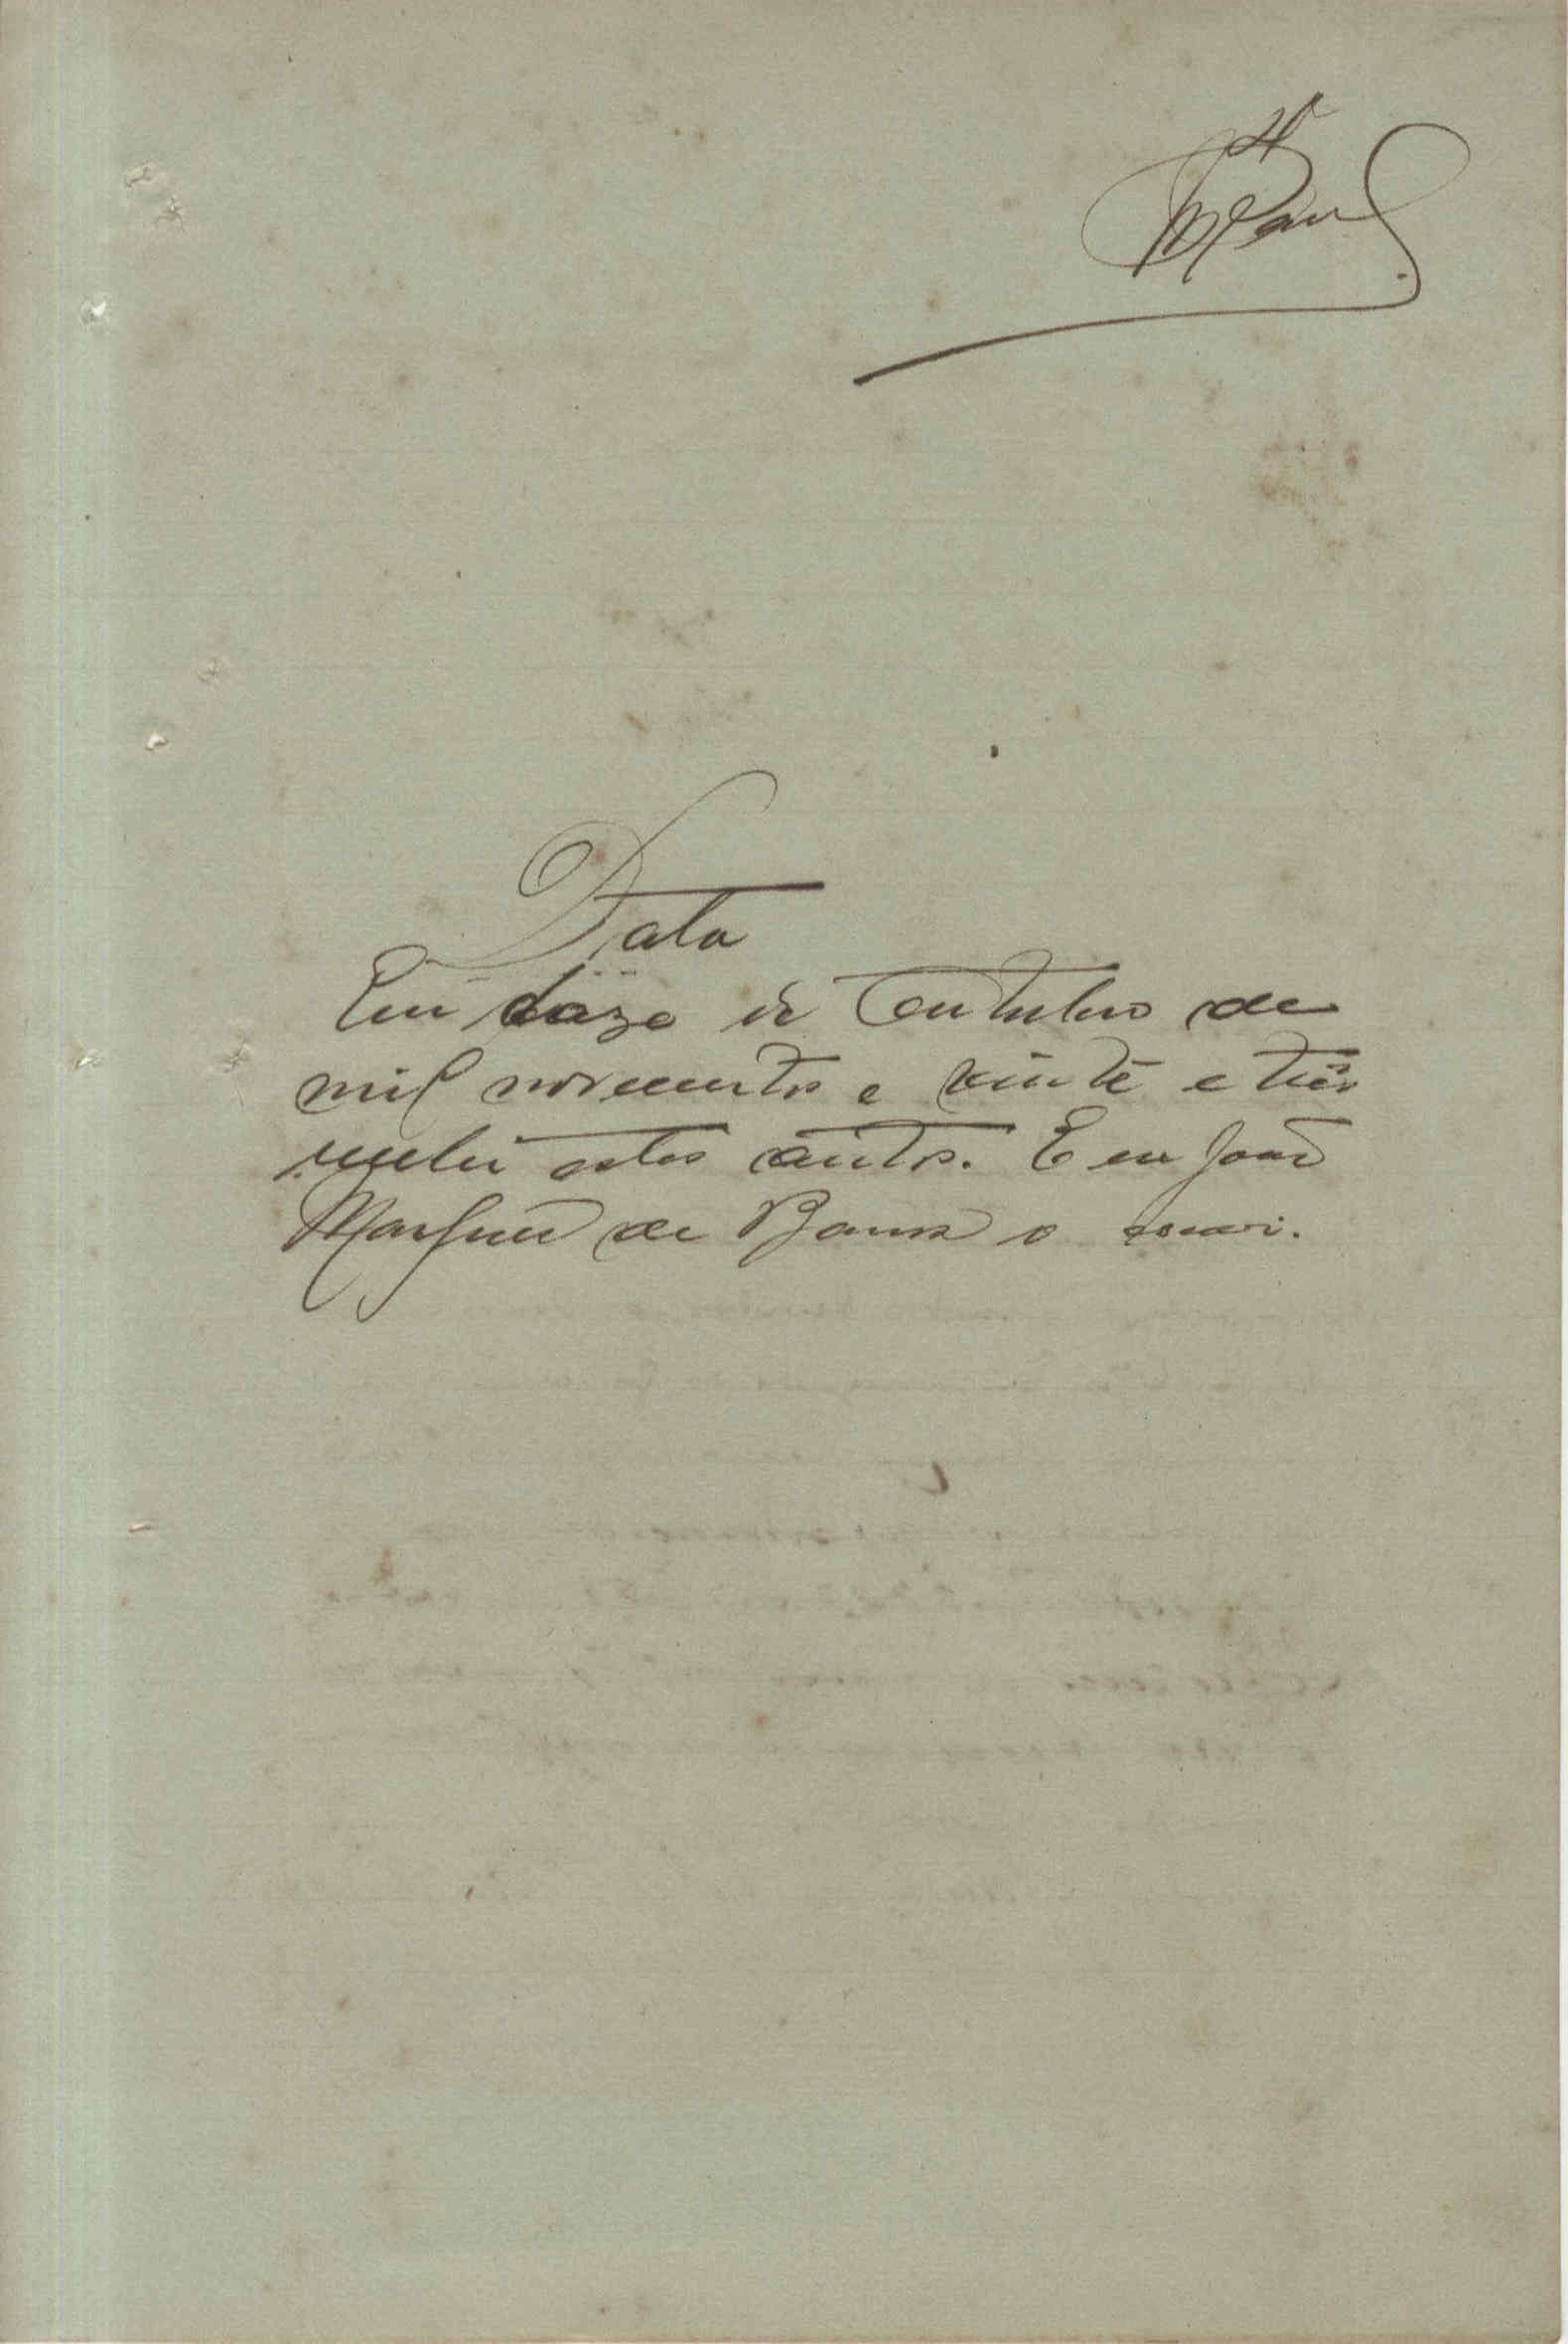 Data
Em doze de Outubro de
mil novecentos e vinte e tres
recebi estes autos. E eu João
de Barros o escrevi.